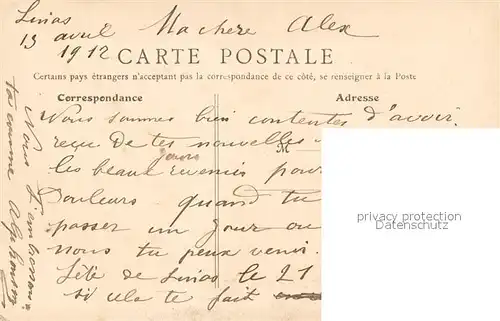 Linas
13 avril Ma chere Alex
1912
CARTE POSTALE
Certains pays étrangers n'acceptant pas la correspondance de ce côté, se renseigner à la Poste
Correspondance
Adresse
Nous sommes bien contentes d'avoir
reçu de tes nouvelles
M
jours
les beaux pour
Douleurs quand tu
passer un jour ou
nous tu peux venir
fête de Linas le 21
si cela te fait
Nous t'embrassons
ta cousine Alphonsine
privacy protection
Datenschutz